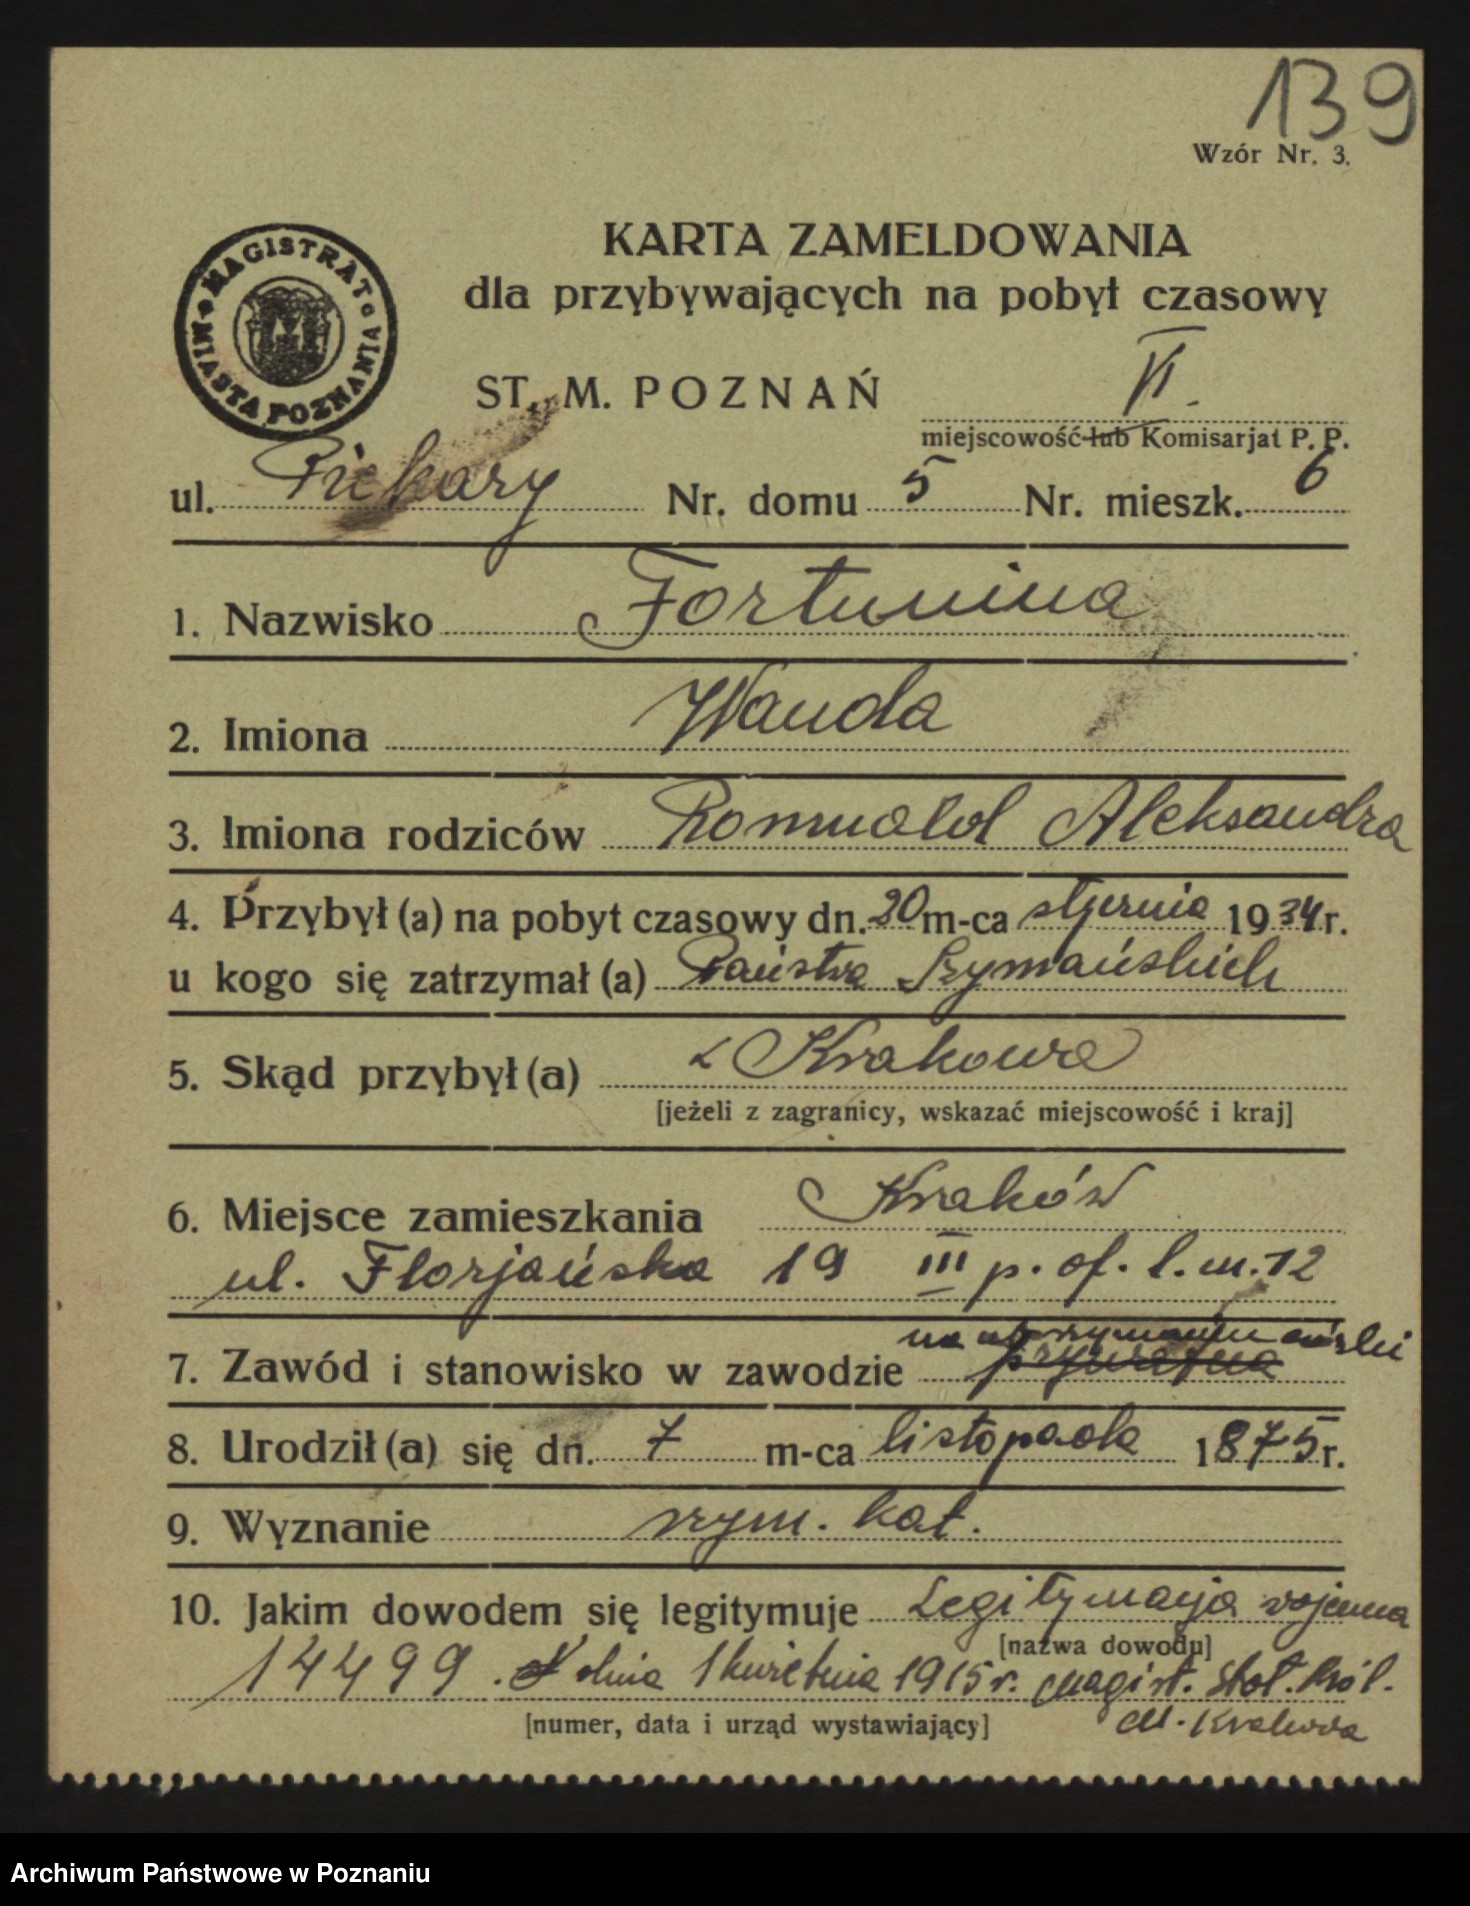 139
Wzór Nr. 3.
MAGISTRAT
MIASTA POZNANIA
KARTA ZAMELDOWANIA
dla przybywających na pobyt czasowy
ST. M. POZNAŃ VI.
miejscowość lub Komisarjat P. P.
ul. Piekary Nr. domu 5 Nr. mieszk. 6
1. Nazwisko Fortunina
2. Imiona Wanda
3. Imiona rodziców Romuald Aleksandra
4. Przybył (a) na pobyt czasowy dn. 20 m-ca stycznia 1934 r.
u kogo się zatrzymał (a) Państwa Szymańskich
5. Skąd przybył (a) z Krakowa
[jeżeli z zagranicy, wskazać miejscowość i kraj]
6. Miejsce zamieszkania Kraków
ul. Florjańska 19 III p. of. l. m. 12
na utrzymaniu córki
7. Zawód i stanowisko w zawodzie prywatna
8. Urodził (a) się dn. 7 m-ca listopada 1875 r.
9. Wyznanie rzym. kat.
10. Jakim dowodem się legitymuje Legitymacja wojenna
[nazwa dowodu]
14499. dnia 1 kwietnia 1915 r. Magist. Stoł. Król.
[numer, data i urząd wystawiający] M. Krakowa
Archiwum Państwowe w Poznaniu